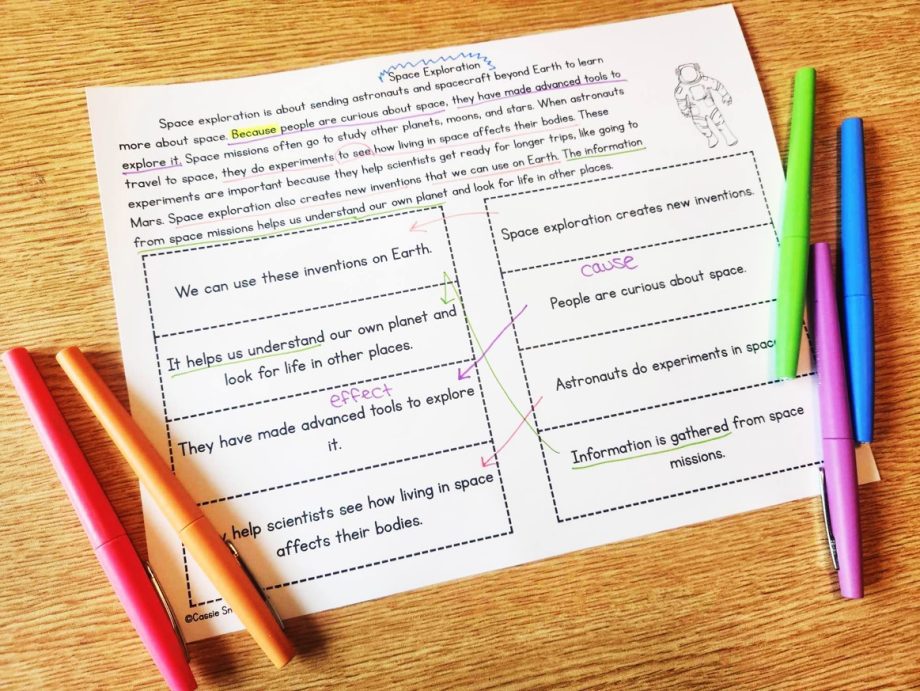 Space Exploration
Space exploration is about sending astronauts and spacecraft beyond Earth to learn
more about space. Because people are curious about space, they have made advanced tools to
explore it. Space missions often go to study other planets, moons, and stars. When astronauts
travel to space, they do experiments to see how living in space affects their bodies. These
experiments are important because they help scientists get ready for longer trips, like going to
Mars. Space exploration also creates new inventions that we can use on Earth. The information
from space missions helps us understand our own planet and look for life in other places.
We can use these inventions on Earth.
It helps us understand our own planet and
look for life in other places.
effect
They have made advanced tools to explore
it.
help scientists see how living in space
affects their bodies.
©Cassie
Space exploration creates new inventions.
cause
People are curious about space.
Astronauts do experiments in
Information is gathered from space
missions.